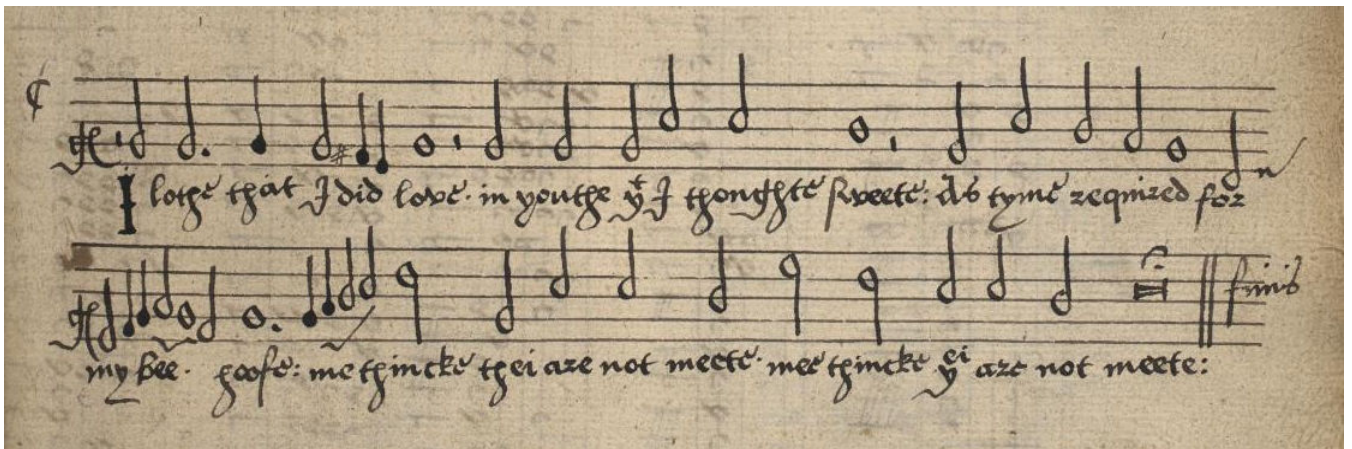 I lothe that I did love. in youthe yͭ I thoughte sweete: As tyme required for
finis
my bee. hoofe: me thincke thei are not meete. mee thincke yͤͥ are not meete: